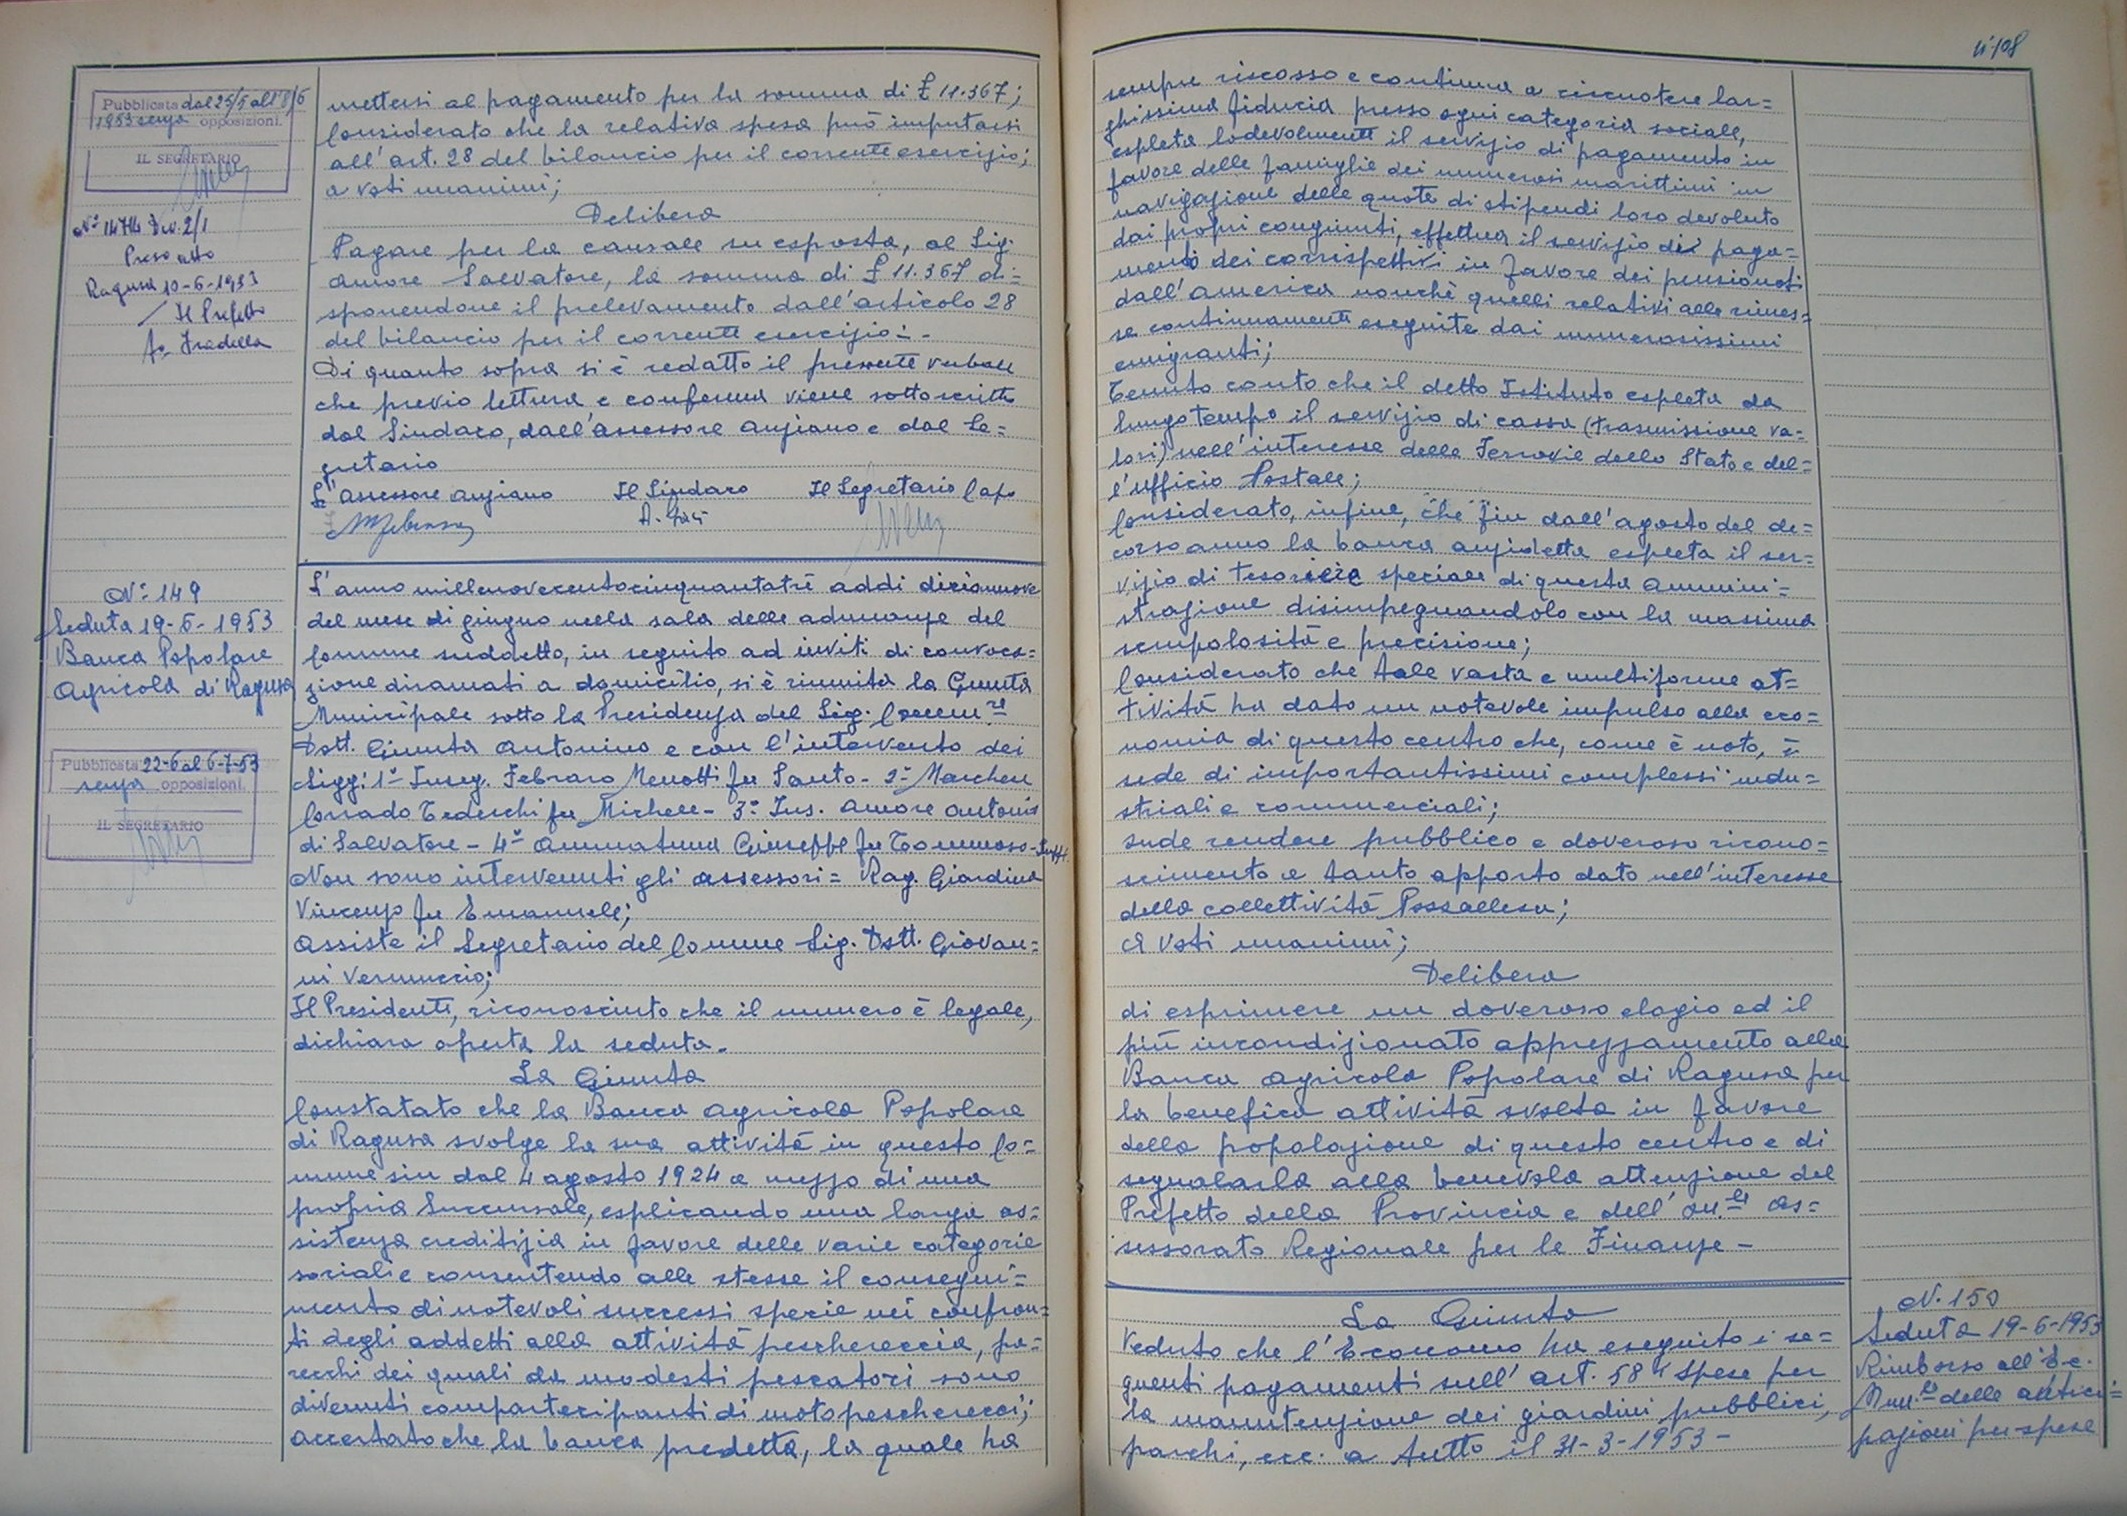 Pubblicata dal 25/5 al 1° 8/6
1953 senza opposizioni.
IL SEGRETARIO
N° 14714 Div. 2/1
Preso atto
Ragusa 10-6-1953
Il Prefetto
mettersi al pagamento per la somma di £ 11.367;
Considerato che la relativa spesa può imputarsi
all'art. 28 del bilancio per il corrente esercizio;
a voti unanimi;
Delibera
Pagare per la causale su esposta, al Sig.
Amore Salvatore, la somma di £ 11.367 di=
sponendone il prelevamento dall'articolo 28
del bilancio per il corrente esercizio=.
Di quanto sopra si è redatto il presente verbale
che previo lettura e conferma viene sottoscritto
dal Sindaco, dall'assessore anziano e dal Se=
gretario
L'assessore anziano Il Sindaco Il Segretario Capo
N° 149
Seduta 19-6-1953
Banca Popolare
Agricola di Ragusa
Pubblicata 22-6 al 6-7-53
senza opposizioni.
IL SEGRETARIO
L'anno millenovecentocinquantatré addi diciannove
del mese di giugno nella sala delle adunanze del
Comune suddetto, in seguito ad inviti di convoca=
zione diramati a domicilio, si è riunita la Giunta
Municipale sotto la Presidenza del Sig.
Dott. Giunta Antonino e con l'intervento dei
Sigg: 1° Inseg. Febraro Menotti fu Santo - 2°
Corrado Tedeschi fu Michele - 3° Ins. Amore Antonio
di Salvatore - 4° Ammatuna Giuseppe fu Tommaso - Supp.
Non sono intervenuti gli assessori = Rag. Giardina
Vincenzo fu Emanuele;
Assiste il Segretario del Comune Sig. Dott. Giovan=
ni Vernuccio;
Il Presidente, riconosciuto che il numero è legale,
dichiara aperta la seduta.
La Giunta
Constatato che la Banca Agricola Popolare
di Ragusa svolge la sua attività in questo Co=
mune sin dal 4 agosto 1924 a mezzo di una
propria Succursale, esplicando una larga as=
sistenza creditizia in favore delle varie categorie
sociali e consentendo alle stesse il consegui=
mento di notevoli successi specie nei confron=
ti degli addetti alla attività peschereccia, pa=
recchi dei quali da modesti pescatori sono
divenuti compartecipanti di motopescherecci;
accertato che la banca predetta, la quale ha
108
sempre riscosso e continua a riscuotere lar=
ghissima fiducia presso ogni categoria sociale,
espleta lodevolmente il servizio di pagamento in
favore delle famiglie dei numerosi marittimi in
navigazione delle quote di stipendi loro devoluto
dai propri congiunti, effettua il servizio dei paga=
menti dei corrispettivi in favore dei pensionati
dall'America nonchè quelli relativi alle rimes=
se continuamente eseguite dai numerosissimi
emigranti;
Tenuto conto che il detto Istituto espleta da
lungo tempo il servizio di cassa (trasmissione va=
lori) nell'interesse delle Ferrovie dello Stato e del=
l'ufficio Postale;
Considerato, infine, che fin dall'agosto del de=
corso anno la banca anzidetta espleta il ser=
vizio di tesoreria speciale di questa Ammini=
strazione disimpegnandolo con la massima
scrupolosità e precisione;
Considerato che tale vasta e multiforme at=
tività ha dato un notevole impulso alla eco=
nomia di questo centro che, come è noto, è
sede di importantissimi complessi indu=
striali e commerciali;
Onde rendere pubblico e doveroso ricono=
scimento a tanto apporto dato nell'interesse
della collettività Pozzallese;
A voti unanimi;
Delibera
di esprimere un doveroso elogio ed il
più incondizionato apprezzamento alla
Banca Agricola Popolare di Ragusa per
la benefica attività svolta in favore
della popolazione di questo centro e di
segnalarla alla benevola attenzione del
Prefetto della Provincia e dell'On.le As=
sessorato Regionale per le Finanze -
La Giunta
Veduto che l'Economo ha eseguito i se=
guenti pagamenti sull'art. 58 "Spese per
la manutenzione dei giardini pubblici,
parchi, ecc. a tutto il 31-3-1953 -
N. 150
Seduta 19-6-1953
Rimborso all'Ec.
Mun.le delle antici=
pazioni per spese